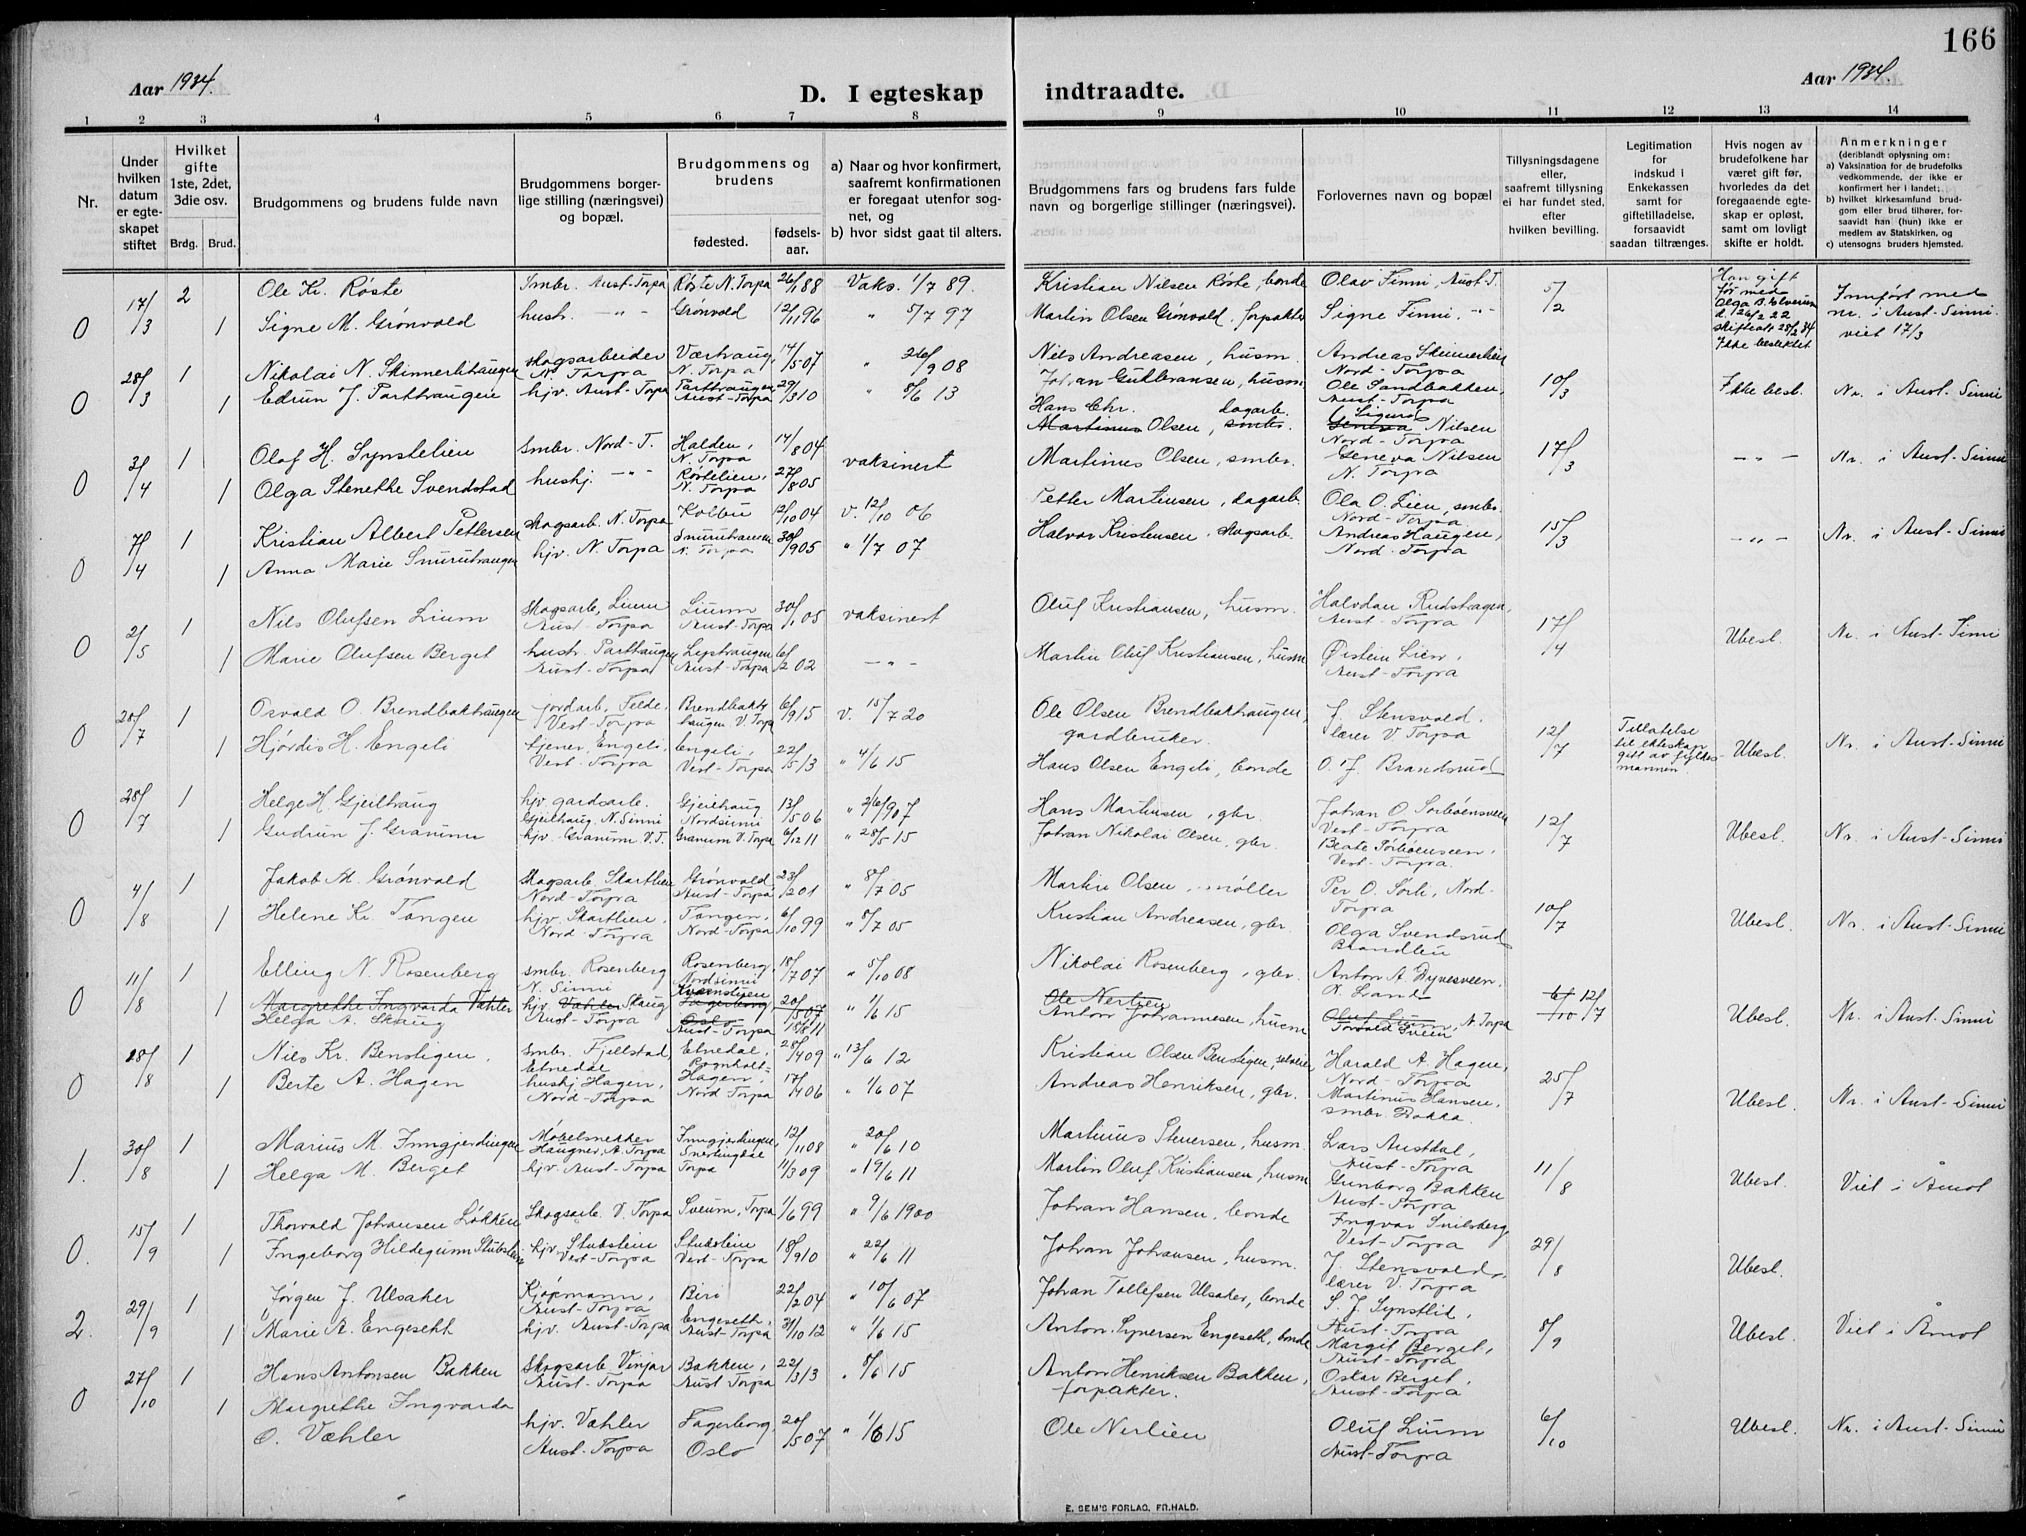 166
Aar 1934.
D. I egteskap indtraadte.
Aar 1934.
1 2 3 4 5 6 7 8 9 10 11 12 13 14
Nr.
Under hvilken datum er egteskapet stiftet
Hvilket gifte 1ste, 2det, 3die osv.
Brdg. Brud.
Brudgommens og brudens fulde navn
Brudgommens borgerlige stilling (næringsvei) og bopæl.
Brudgommens og brudens
fødested.
fødselsaar.
a) Naar og hvor konfirmert, saafremt konfirmationen er foregaat utenfor sognet, og
b) hvor sidst gaat til alters.
Brudgommens fars og brudens fars fulde navn og borgerlige stillinger (næringsvei).
Forlovernes navn og bopæl
Tillysningsdagene eller, saafremt tillysning ei har fundet sted, efter hvilken bevilling.
Legitimation for indskud i Enkekassen samt for giftetilladelse, forsaavidt saadan tiltrænges.
Hvis nogen av brudefolkene har været gift før, hvorledes da det foregaaende egteskap er opløst, samt om lovligt skifte er holdt.
Anmerkninger
(deriblandt oplysning om:
a) Vaksination for de brudefolks vedkommende, der ikke er konfirmert her i landet;
b) hvilket kirkesamfund brudgom eller brud tilhører, forsaavidt han (hun) ikke er medlem av Statskirken, og
c) utensogns bruders hjemsted.
0 17/3 2 Ole Kr. Røste Smbr. Aust-Torpa Røste N. Torpa 26/1 88 Vaks. 1/7 89. Kristian Nilsen Røste, bonde Olav Finni, Aust-T. 5/2 Han gift før med Olga B. Elverum d. 26/2 22 skifteatt 28/2 34 Ikke beslektet Innført med nr. i Aust-Sinni. viet 17/3
1 Signe M. Grønvold hush. -"- Grønvold 12/11 96 " 5/7 97 Martin Olsen Grønvold, forpakter Signe Finni, -"-
0 28/3 1 Nikolai N. Skinnerlihaugen skogsarbeider N. Torpa Værhaug, N. Torpa 14/5 07 " 26/9 08 Nils Andreasen, husm. Andreas Skinnerlien Nord-Torpa 10/3 Ikke besl. Nr. i Aust-Sinni
1 Edrun J. Parthaugen hjv. Aust-Torpa Parthaugen Aust-Torpa 29/3 10 " 8/6 13 Johan Gulbransen, husm. Ole Sandbakken, Aust-Torpa
0 3/4 1 Olaf H. Synstelien Smbr. Nord-T. Halden, N. Torpa 14/8 04 vaksinert Hans Chr. Martinus Olsen, dagarb. smbr. Sigurd Geneva Nilsen Nord-Torpa 17/3 -"- Nr. i Aust-Sinni
1 Olga Stenethe Svendstad hushj. -"- Røstelien, N. Torpa 27/8 05 Martinus Olsen, smbr. Geneva Nilsen N. Torpa
0 7/4 1 Kristian Albert Pettersen skogsarb. N. Torpa Kolbu 12/10 04 v. 12/10 06 Petter Martinsen, dagarb. Ola O. Lien, smbr. Nord-Torpa 15/3 -"- Nr. i Aust-Sinni
1 Anna Marie Snuruhaugen hjv. N. Torpa Snuruhaugen N. Torpa 30/9 05 " 1/7 07 Halvor Kristensen, skogsarb. Andreas Haugen, Nord-Torpa
0 2/5 1 Nils Olufsen Lium Skogsarb, Lium Aust-Torpa Lium Aust-Torpa 30/1 05 vaksinert Oluf Kristiansen, husm. Halvdan Rudshagen, Aust-Torpa 17/4 Ubesl. Nr. i Aust-Sinni
1 Marie Olufsen Berget hush. Parthaugen Aust-Torpa Aust-Torpa 6/2 02 -"- Martin Oluf Kristiansen, husm Øistein Lien, Aust-Torpa
0 28/7 1 Osvald O. Brendbakhaugen jordarb. Felde, Vest-Torpa Brendbakhaugen V. Torpa 6/9 15 v. 15/7 20 Ole Olsen Brendbakhaugen, gardbruker. J. Stensvold, lærer V Torpa 12/7 Tillatelse til ekteskap gitt av fylkesmannen Ubesl. Nr. i Aust-Sinni
1 Hjørdis H. Engeli tjener, Engeli, Vest-Torpa Engeli, Vest-Torpa 22/5 13 " 4/6 15 Hans Olsen Engeli, bonde O. J. Brandsrud
0 28/7 1 Helge H. Gjeilhaug hjv. gardsarb. Gjeilhaug, N. Sinni Gjeilhaug Nordsinni 13/5 06 " 2/6 07 Hans Martinsen, gbr. Johan O. Sorbøensveen Vest-Torpa 12/7 Ubesl. Nr. i Aust-Sinni
1 Gudrun J. Granum hjv. Granum V. T. Granum V. Torpa 6/12 11 " 28/5 15 Johan Nikolai Olsen, gbr. Beate Sorbøensveen, Vest-Torpa.
0 4/8 1 Jakob M. Grønvold Skogsarb. Skartlien Nord-Torpa Grønvold Aust-Torpa 23/2 01 " 8/7 05 Martin Olsen, møller Per O. Sørli, Nord-Torpa 10/7 Ubesl. Nr. i Aust-Sinni
1 Helene Kr. Tangen hjv. Skartlien, Nord-Torpa Tangen, Nord-Torpa 6/10 99 " 8/7 05 Kristian Andreasen, gbr. Olga Svendsrud Brandbu
0 11/8 1 Elling N. Rosenberg smbr. Rosenberg N. Sinni Rosenberg, Nordsinni 18/7 07 " 5/10 08 Nikolai Rosenberg, gbr. Anton A Dyvesveen, N. Land 6/10 12/7 Ubesl. Nr. i Aust-Sinni
1 Margrethe Ingvarda Væhler Helga A. Skaug hjv. Væhler Skaug Aust-Torpa Kværnstuen Fagerborg Oslo Aust-Torpa 20/5 07 15/8 11 " 1/6 15 Ole Nerlien Anton Johannesen, husm Oluf Lium, N. Torpa Torvald Sveen
0 18/8 1 Nils Kr. Benstigen. Smbr. Fjellstad, Etnedal Etnedal, 28/4 09 " 13/6 12 Kristian Olsen Benstigen, selveier Harald A. Hagen, Nord-Torpa 25/7 Ubesl. Nr. i Aust-Sinni
1 Berte A. Hagen hushj. Hagen, Nord-Torpa Hagen, Nord Torpa 17/4 06 " 1/6 07 Andreas Henriksen, gbr. Martinus Hansen, smbr. Bakka.
1. 30/8 1 Marius M. Inngjerdingen Møbelsnekker Haugner, A. Torpa Inngjerdingen, Snertingdal 12/11 08 " 20/6 10 Martinus Stenersen, husm. Lars Austdal, Aust-Torpa 11/8 Ubesl. Viet i Åmot
1 Helga M. Berget hjv. Aust-Torpa Torpa 11/3 09 " 19/6 11 Martin Oluf Kristiansen, husm Gunborg Bakken Aust-Torpa
0. 15/9 1 Thorvald Johansen Løkken Skogsarb. V. Torpa Sveum, Torpa 1/6 99 " 9/6 1900 Johan Hansen, bonde Ingvar Snilsberg, Vest-Torpa 29/8 Ubesl.
1 Ingeborg Hildegunn Stubslien hjv. Stubslein Vest-Torpa Stubslein Vest-Torpa 18/9 10 " 22/6 11 Johan Johansen, husm. J. Stensvold, lærer V. Torpa
2. 29/9 1 Jørgen J. Ulsaker Kjøpmann, Aust-Torpa Biri 22/2 04 " 10/6 07 Johan Tollefsen Ulsaker, bonde S. J. Synstlid, Aust-Torpa 8/9 Ubesl. Viet i Åmot
1 Marie A. Engeseth hjv. Aust-Torpa Engeseth, Aust-Torpa 31/10 12 " 1/6 15 Anton Synersen Engeseth, bonde Margit Berget, Aust-Torpa
0 27/10 1 Hans Antonsen Bakken Skogsarb. Vinjar Aust-Torpa Bakken, Aust Torpa 22/3 13 " 8/6 15 Anton Henriksen Bakken, forpakter. Oskar Berget, Aust-Torpa 6/10 Ubesl. Nr. i Aust-Sinni
1 Margrethe Ingvarda O. Væhler hjv. Væhler Aust-Torpa Fagerborg, Oslo 20/5 07 " 1/6 15 Ole Nerlien Oluf Lium Aust-Torpa
E. SEM'S FORLAG, FR.HALD.